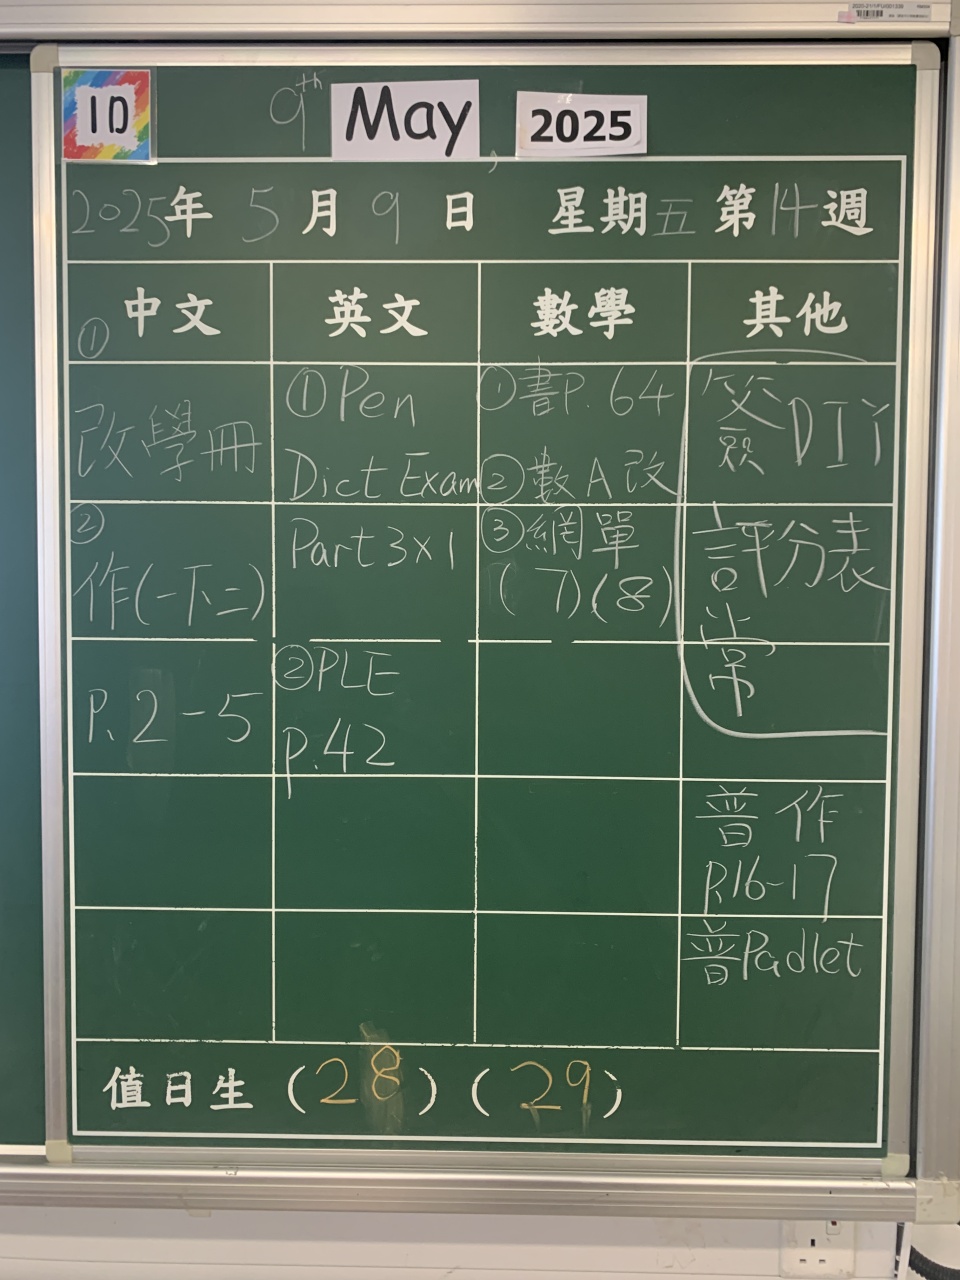 1D
9th May, 2025
2025年 5月 9日 星期五 第14週
中文
①
改學冊
②
作(一下二)
P. 2-5
英文
①Pen
Dict Exam
Part 3x1
②PLE
p.42
數學
①書P. 64
②數A改
③網單
(7)(8)
其他
DIY
評分表
常
普作
P.16-17
普Padlet
值日生 (28) (29)